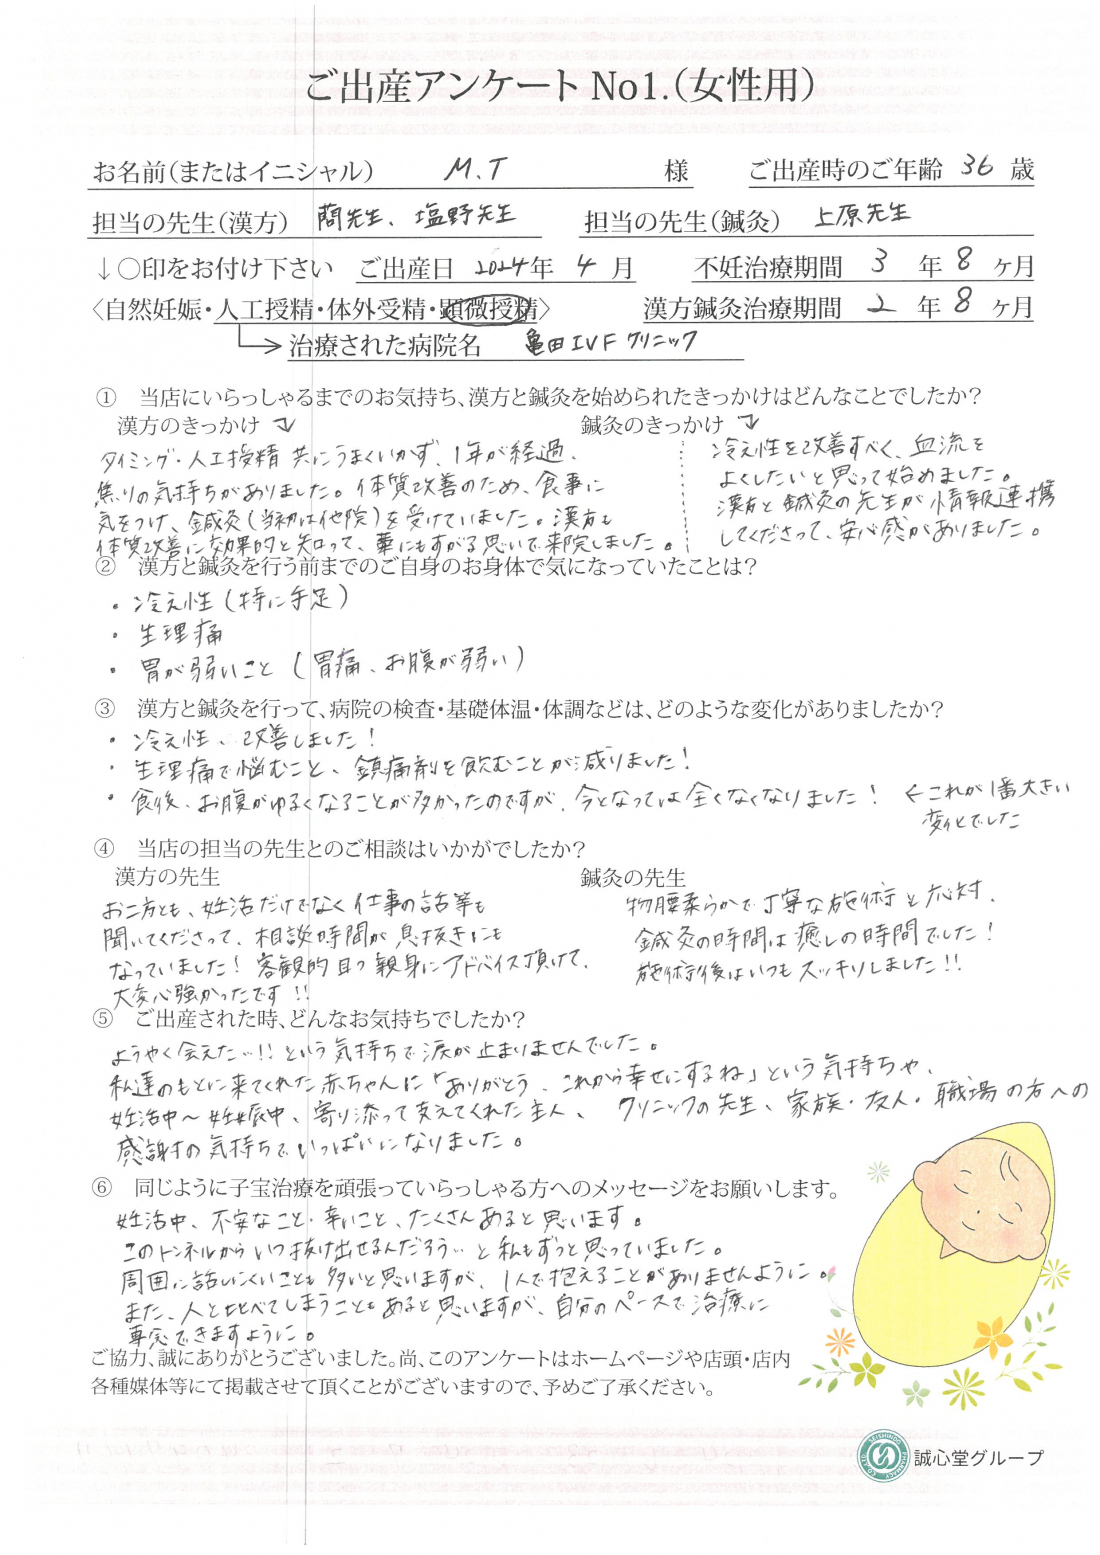 ご出産アンケート No1.(女性用)
お名前(またはイニシャル) M.T 様 ご出産時のご年齢 36 歳
担当の先生(漢方) 藺先生、塩野先生 担当の先生(鍼灸) 上原先生
↓○印をお付け下さい ご出産日 2024年 4 月 不妊治療期間 3 年 8 ヶ月
〈自然妊娠・人工授精・体外受精・顕微授精〉 漢方鍼灸治療期間 2 年 8 ヶ月
治療された病院名 亀田IVFクリニック
① 当店にいらっしゃるまでのお気持ち、漢方と鍼灸を始められたきっかけはどんなことでしたか?
漢方のきっかけ
タイミング・人工授精 共にうまくいかず、1年が経過、
焦りの気持ちがありました。体質改善のため、食事に
気をつけ、鍼灸(当初は他院)を受けていました。漢方も
体質改善に効果的と知って、藁にもすがる思いで来院しました。
鍼灸のきっかけ
冷え性を改善すべく、血流を
よくしたいと思って始めました。
漢方と鍼灸の先生が情報連携
してくださって、安心感がありました。
② 漢方と鍼灸を行う前までのご自身のお身体で気になっていたことは?
・冷え性(特に手足)
・生理痛
・胃が弱いこと(胃痛、お腹が弱い)
③ 漢方と鍼灸を行って、病院の検査・基礎体温・体調などは、どのような変化がありましたか?
・冷え性、改善しました!
・生理痛で悩むこと、鎮痛剤を飲むことが減りました!
・食後、お腹がゆるくなることが多かったのですが、今となっては全くなくなりました! ←これが1番大きい
変化でした
④ 当店の担当の先生とのご相談はいかがでしたか?
漢方の先生
お二方とも、妊活だけでなく仕事の話等も
聞いてくださって、相談時間が息抜きにも
なっていました!客観的且つ親身にアドバイス頂けて、
大変心強かったです!!
鍼灸の先生
物腰柔らかで丁寧な施術と応対、
鍼灸の時間は癒しの時間でした!
施術後はいつもスッキリしました!!
⑤ ご出産された時、どんなお気持ちでしたか?
ようやく会えた…!!という気持ちで涙が止まりませんでした。
私達のもとに来てくれた赤ちゃんに「ありがとう、これから幸せにするね」という気持ちや、
妊活中〜妊娠中、寄り添って支えてくれた主人、クリニックの先生、家族・友人・職場の方への
感謝の気持ちでいっぱいになりました。
⑥ 同じように子宝治療を頑張っていらっしゃる方へのメッセージをお願いします。
妊活中、不安なこと・辛いこと、たくさんあると思います。
このトンネルからいつ抜け出せるんだろう…と私もずっと思っていました。
周囲に話しにくいことも多いと思いますが、1人で抱えることがありませんように。
また、人と比べてしまうこともあると思いますが、自分のペースで治療に
専念できますように。
ご協力、誠にありがとうございました。尚、このアンケートはホームページや店頭・店内
各種媒体等にて掲載させて頂くことがございますので、予めご了承ください。
誠心堂グループ